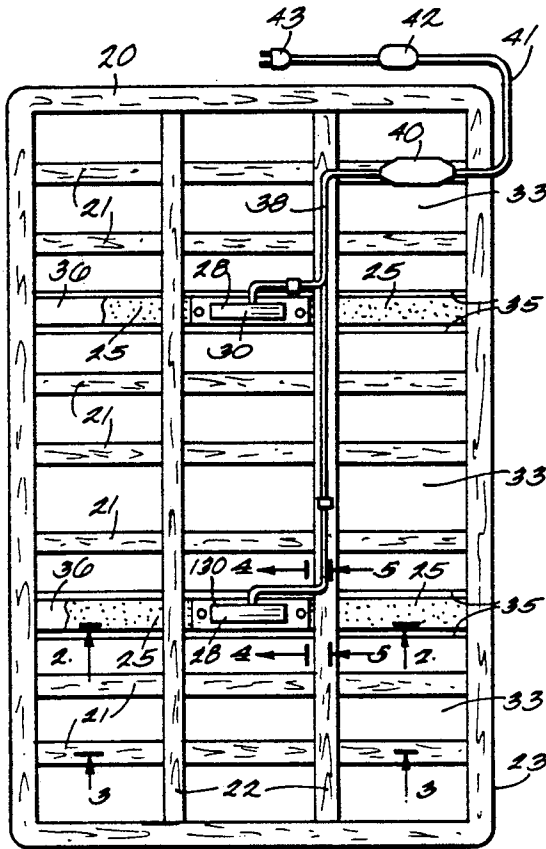 43
42
41
20
40
38
33
21
21
36
28
25
35
25
30
21
21
33
21
36
130
4
5
25
25
28
35
2.
4
5
2.
21
33
21
3
22
3
23